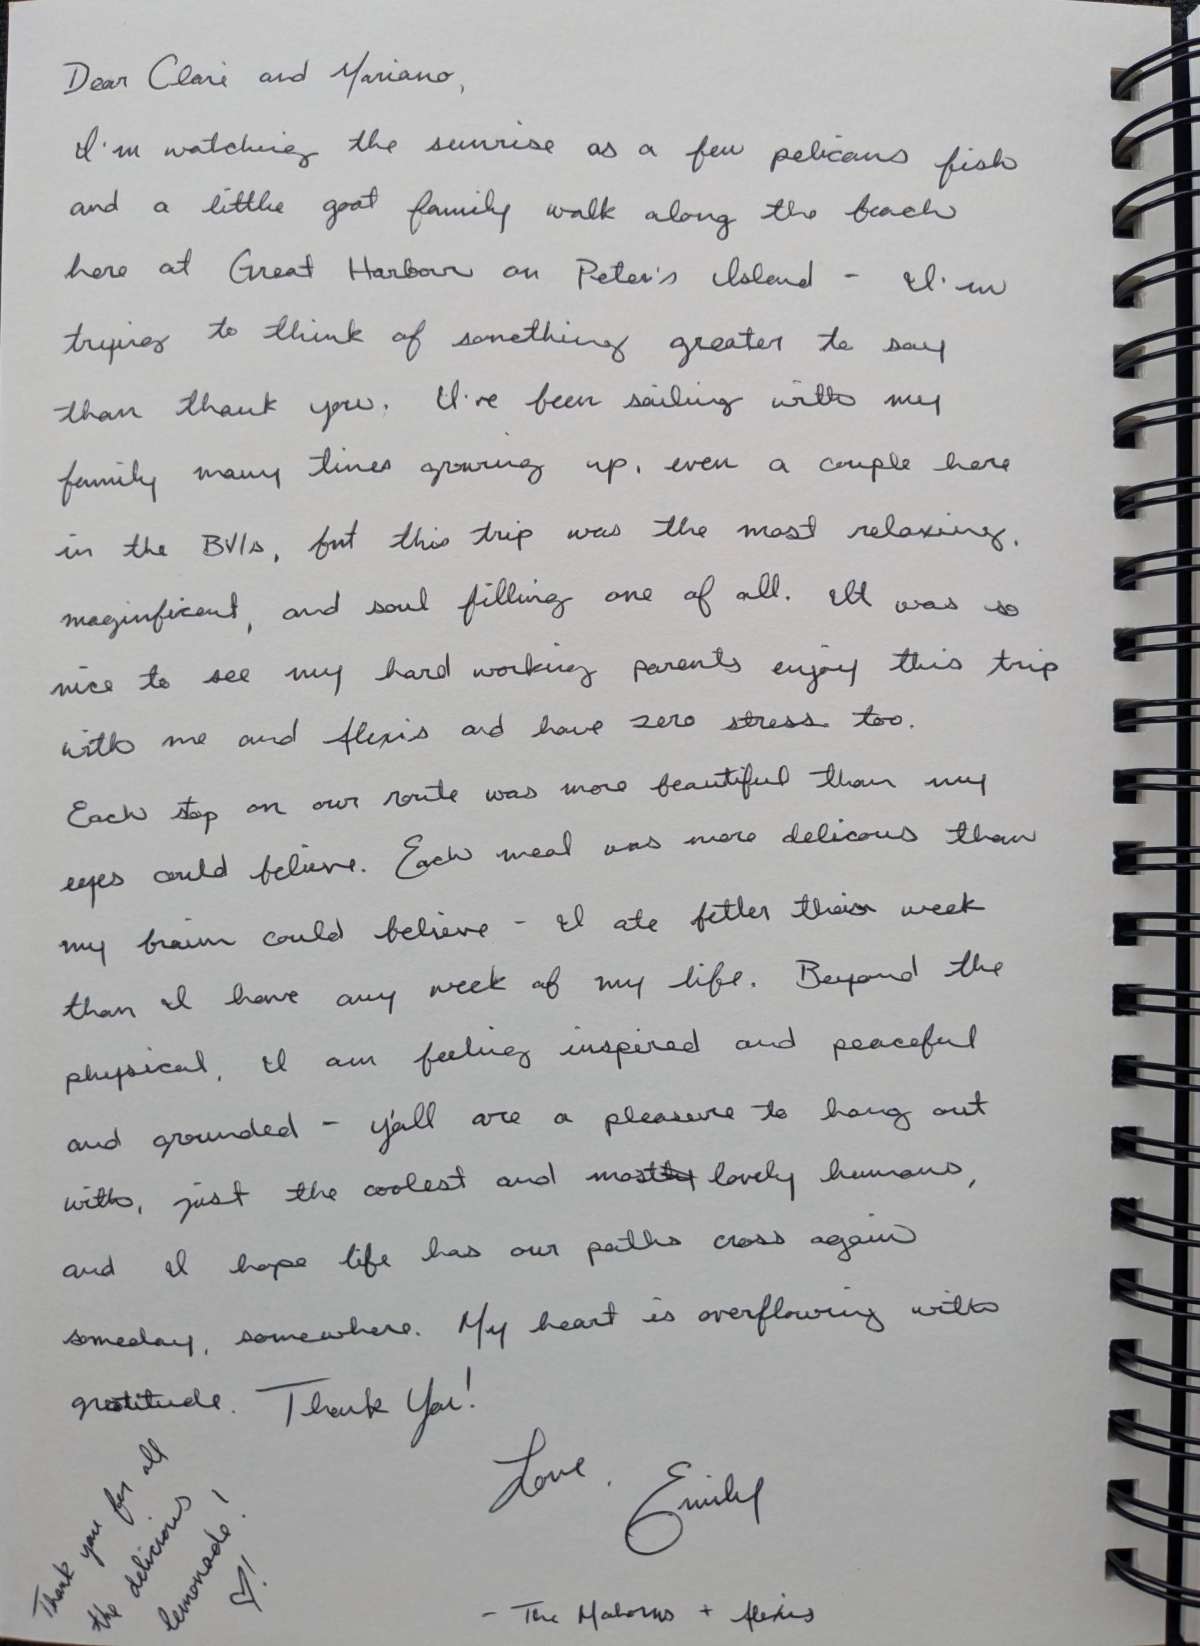 Dear Clari and Mariano,
I'm watching the sunrise as a few pelicans fish
and a little goat family walk along the beach
here at Great Harbour on Peter's Island - I'm
trying to think of something greater to say
than thank you. I've been sailing with my
family many times growing up, even a couple here
in the BVIs, but this trip was the most relaxing,
maginficent, and soul filling one of all. It was so
nice to see my hard working parents enjoy this trip
with me and Alexis and have zero stress too.
Each stop on our route was more beautiful than my
eyes could believe. Each meal was more delicous than
my brain could believe - I ate better this week
than I have any week of my life. Beyond the
physical, I am feeling inspired and peaceful
and grounded - y'all are a pleasure to hang out
with, just the coolest and most lovely humans,
and I hope life has our paths cross again
someday, somewhere. My heart is overflowing with
gratitude. Thank You!
Love, Emily
- The + Alexis
Thank you for all
the delicious
lemonade!
♡!